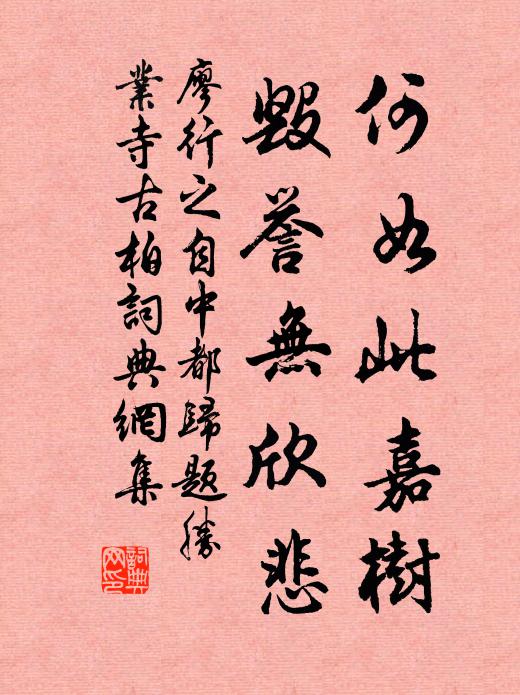 何如此嘉樹
毀譽無欣悲
廖行之自中都歸題勝
業寺古柏詞典網集
詞典網印